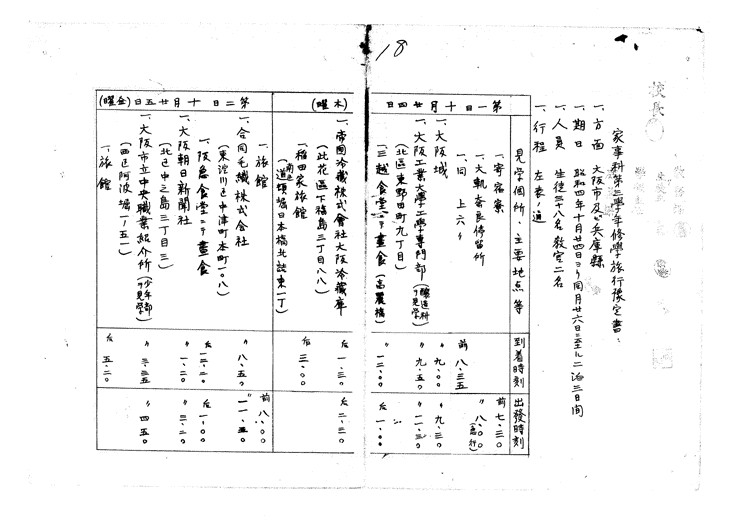 18
校長
家事科第三學年修學旅行豫定書
一、方面 大阪市及ビ兵庫縣
一、期日 昭和四年十月廿四日ヨリ同月廿六日ニ至ル二泊三日間
一、人員 生徒三十八名教官二名
一、行程 左表ノ通
見学個所、主要地点等 到着時刻 出發時刻
第一日 十月廿四日(木曜)
一、寄宿寮 前七、三〇
一、大軌奈良停留所 〃八、〇〇(急行)
一、同 上六〃 前八、三五
一、大阪城 〃九、〇〇 〃九、三〇
一、大阪工業大學工學専門部(醸造科ヲ見学) 〃九、五〇 〃一一、三〇
(北區東野田町九丁目)
一、三越食堂ニテ晝食(高麗橋) 〃一二、〇〇 后一、〇〇
一、帝國冷藏株式會社大阪冷藏庫 后一、三〇 后二、三〇
(此花區下福島三丁目八八)
一、稲田家旅館 后三、〇〇
(南区道頓堀日本橋北詰東一丁)
第二日 十月廿五日(金曜)
一、旅館 前八、〇〇
一、合同毛織株式会社 〃八、五〇 〃一一、五〇
(東淀川区中津町本町一〇八)
一、阪急食堂ニテ晝食 后一二、二〇 后一、〇〇
一、大阪朝日新聞社 〃一、二〇 〃三、二〇
(北区中之島三丁目三)
一、大阪市立中央職業紹介所(少年部ヲ見学) 〃三、三五 〃四、五〇
(西区阿波堀一ノ五一)
一、旅館 后五、二〇